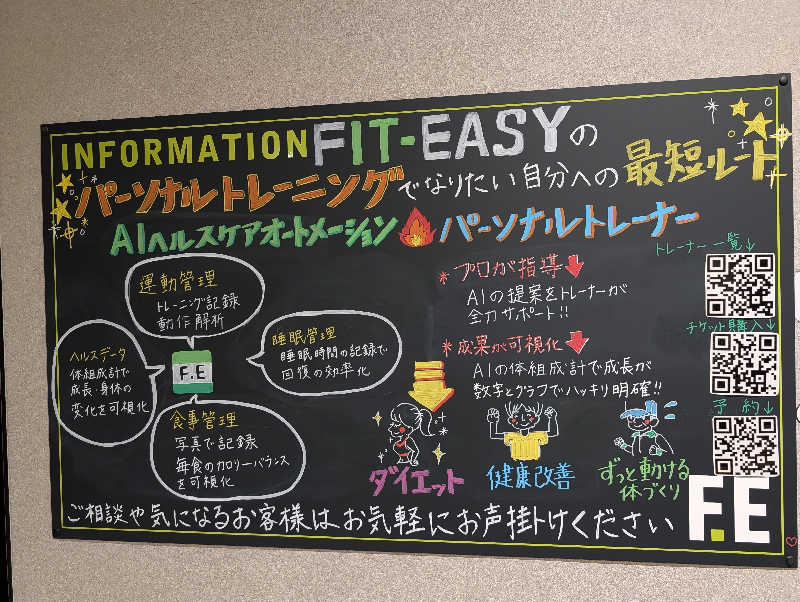 INFORMATION FIT-EASYの
パーソナルトレーニングでなりたい自分への最短ルート
AIヘルスケアオートメーション パーソナルトレーナー
運動管理
トレーニング記録
動作解析
ヘルスデータ
体組成計で
成長・身体の
変化を可視化
F.E
睡眠管理
睡眠時間の記録で
回復の効率化
食事管理
写真で記録
毎食のカロリーバランス
を可視化
*プロが指導
AIの提案をトレーナーが
全力サポート!!
*成果が可視化
AIの体組成計で成長が
数字とグラフでハッキリ明確!!
トレーナー一覧↓
チケット購入↓
予約↓
ダイエット
健康改善
ずっと動ける
体づくり
ご相談や気になるお客様はお気軽にお声掛けください
F.E